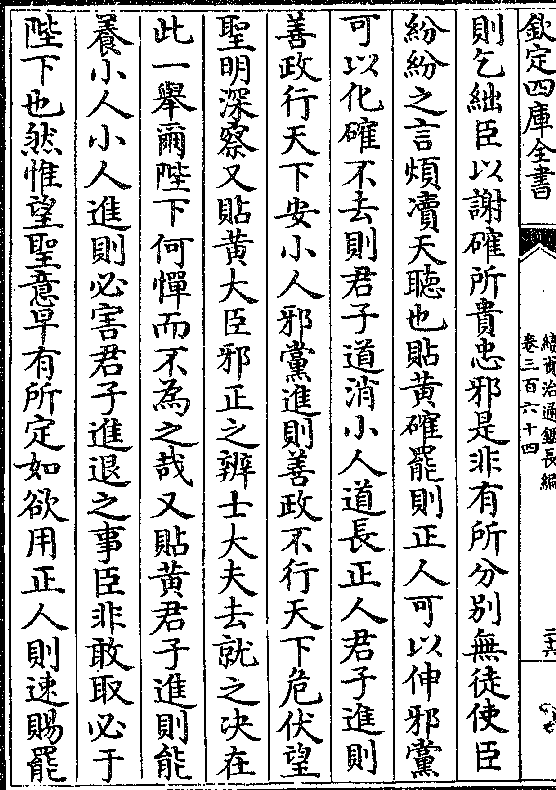 欽定四庫全書
續資治通鑑長編
卷三百六十四
則乞絀臣以謝確所貴忠邪是非有所分別無徒使臣
紛紛之言煩瀆天聽也貼黄確罷則正人可以伸邪黨
可以化確不去則君子道消小人道長正人君子進則
善政行天下安小人邪黨進則善政不行天下危伏望
聖明深察又貼黄大臣邪正之辨士大夫去就之决在
此一舉爾陛下何憚而不為之哉又貼黄君子進則能
養小人小人進則必害君子進退之事臣非敢取必于
陛下也然惟望聖意早有所定如欲用正人則速賜罷